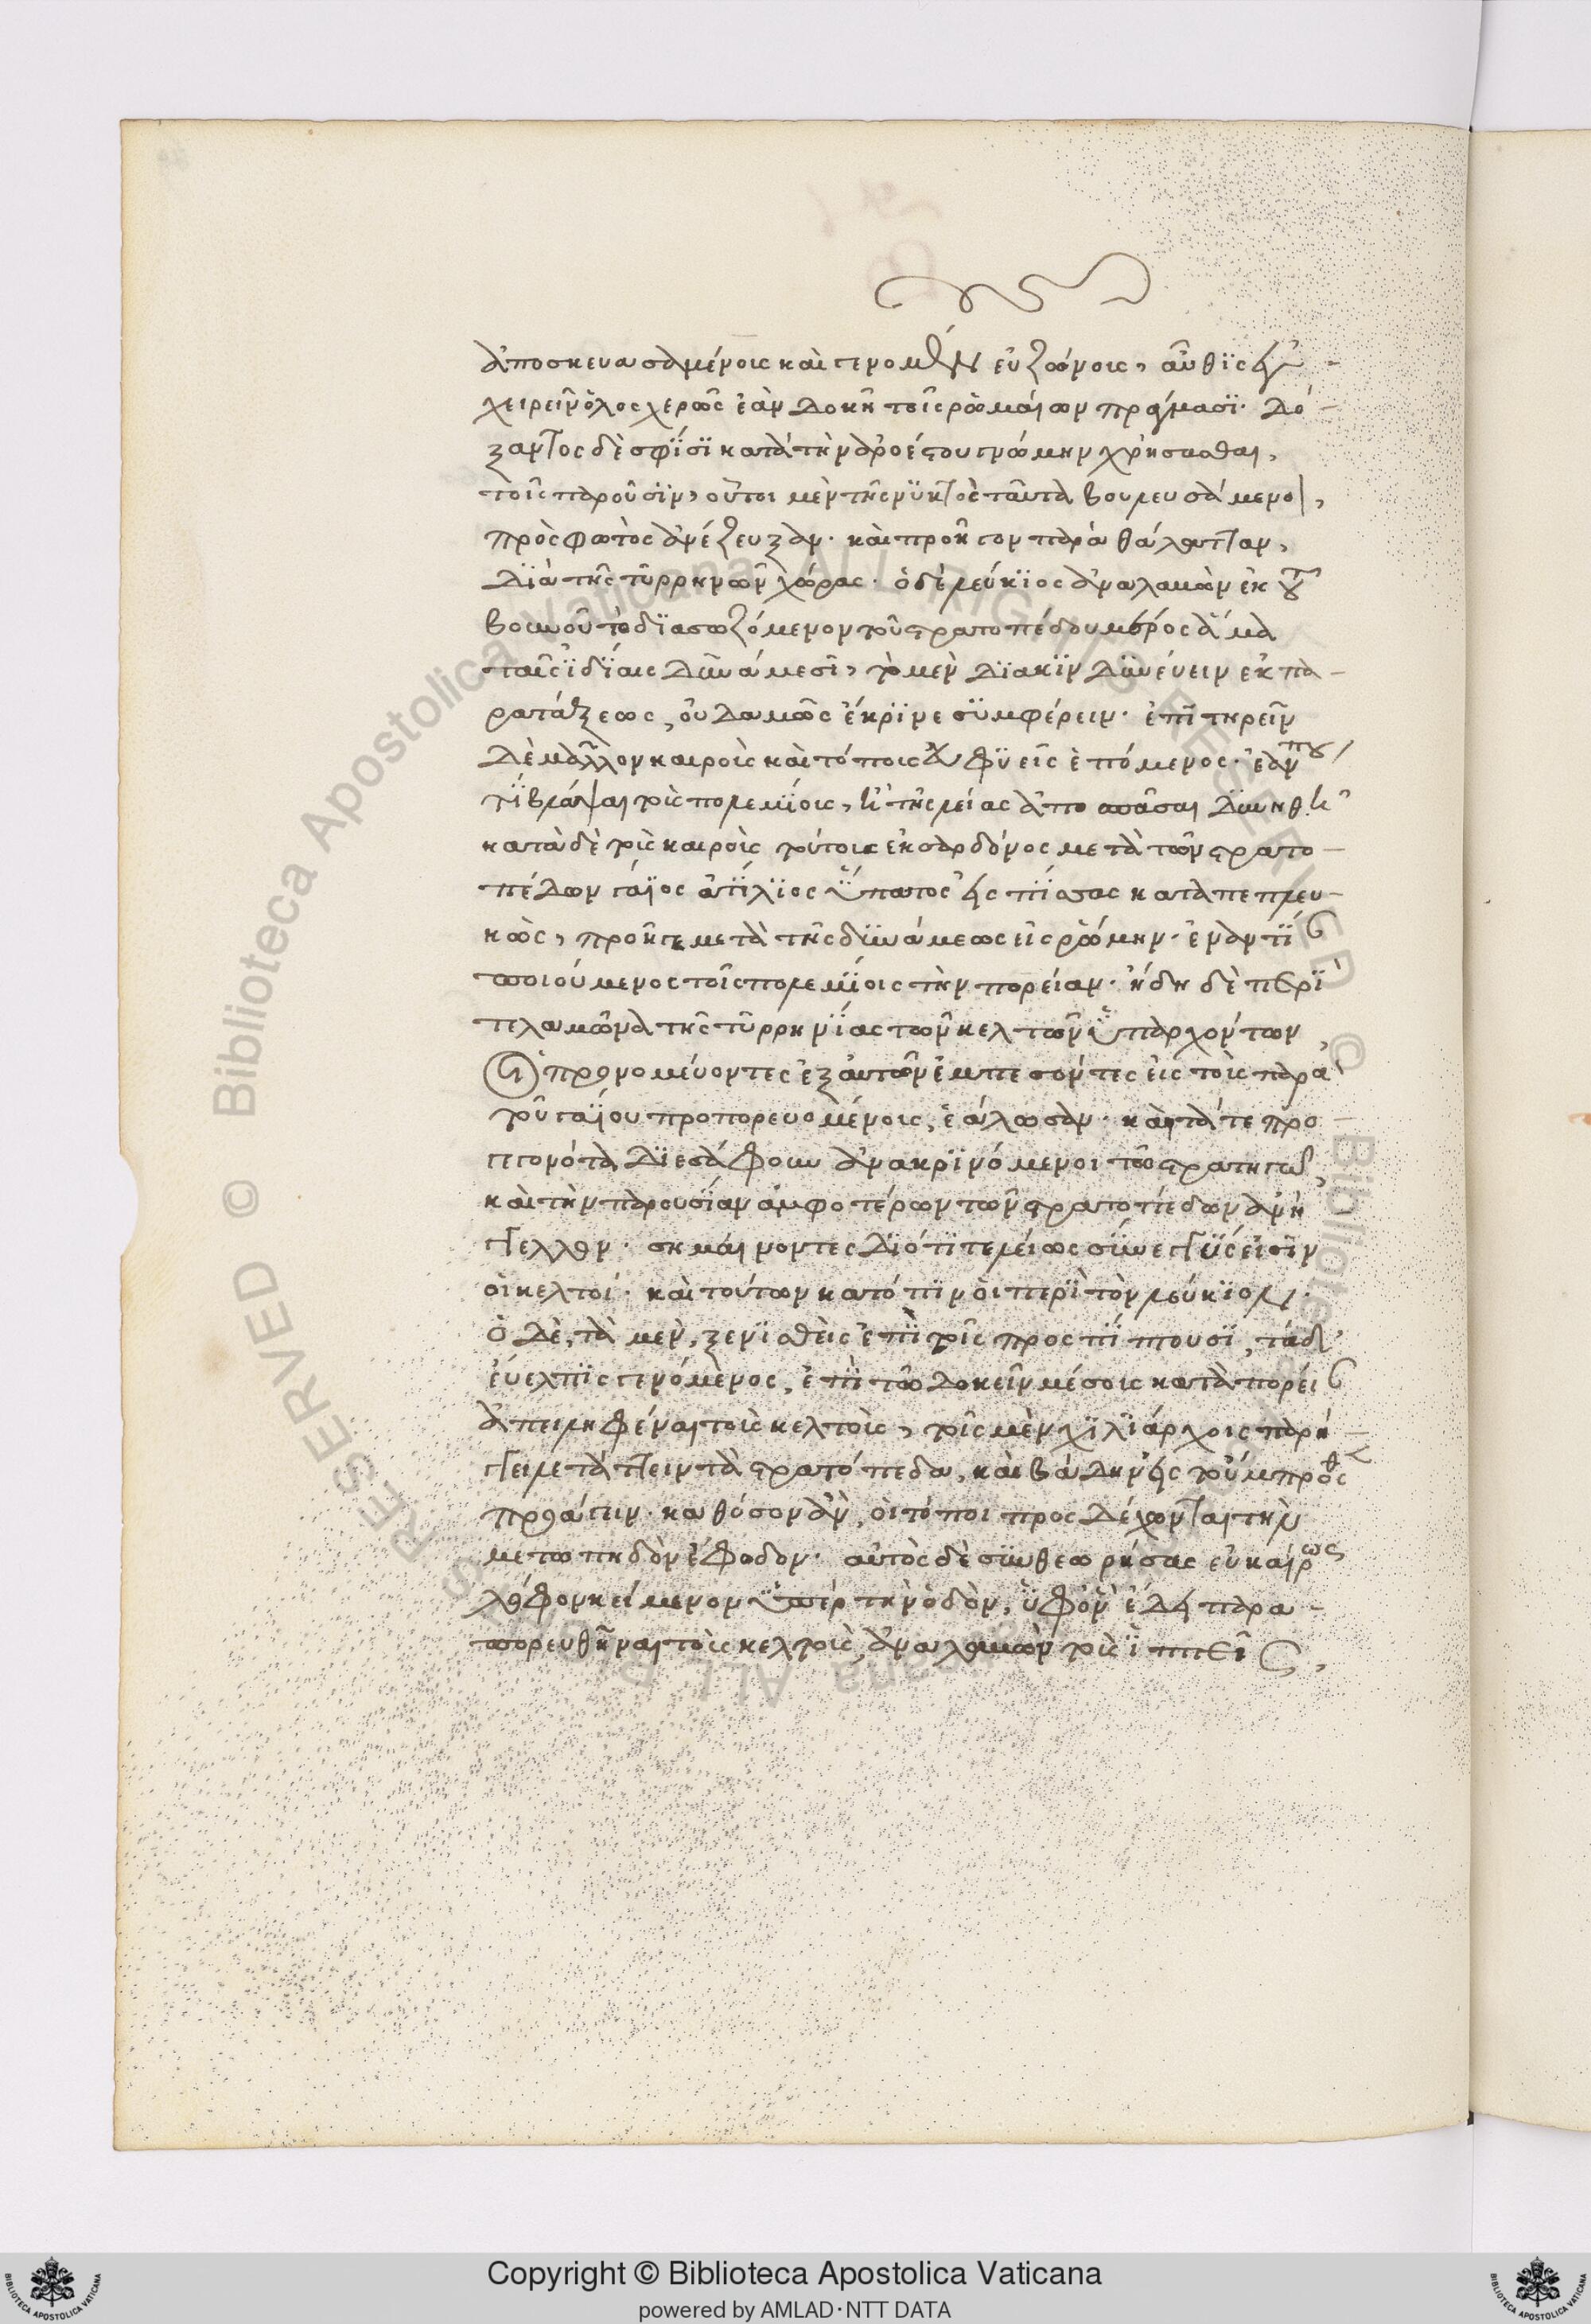 ἀποσκευασαμένοις καὶ γενομένοις εὐζώνοις, αὖθις ἐγ-
χειρεῖν ὁλοσχερῶς ἐὰν δοκῆ τοῖς ῥωμαίων πράγμασι· δό-
ξαντος δὲ σφίσι κατὰ τὴν ἀνροέστου γνώμην χρήσασθαι,
τοῖς παροῦσιν, οὗτοι μὲν τῆς νυκτὸς ταῦτα βουλευσάμενοι,
πρὸ φωτὸς ἀνέζευξαν· καὶ προῆγον παρὰ θάλατταν,
διὰ τῆς τυρρηνῶν χώρας· ὁ δὲ λεύκιος ἀναλαβὼν ἐκ τοῦ
βουνοῦ τὸ διασωζόμενον τοῦ στρατοπέδου μέρος ἅμα
ταῖς ἰδίαις δυνάμεσι, τὸ μὲν διακινδυνεύειν ἐκ πα-
ρατάξεως, οὐδαμῶς ἔκρινε συμφέρειν· ἐπιτηρεῖν
δὲ μᾶλλον καιροὺς καὶ τόπους εὐφυεῖς ἑπόμενος· ἐάν που
τι βλάψαι τοὺς πολεμίους, ἢ τῆς λείας ἀποσπάσαι δυνηθῆ
κατὰ δὲ τοὺς καιροὺς τούτους ἐκ σαρδόνος μετὰ τῶν στρατο-
πέδων γάϊος ἀτίλιος ὕπατος εἰς πίσας καταπεπλευ-
κὼς, προῆγε μετὰ τῆς δυνάμεως εἰς ῥώμην· ἐναντίαν
ποιούμενος τοῖς πολεμίοις τὴν πορείαν· ἤδη δὲ περὶ
τελαμῶνα τῆς τυρρηνίας τῶν κελτῶν ὑπαρχόντων,
οἱ προνομεύοντες ἐξ αὐτῶν ἐμπεσόντες εἰς τοὺς παρὰ
τοῦ γαΐου προπορευομένους, ἑάλωσαν· καὶ τά τε προ
γεγονότα διεσάφουν ἀνακρινόμενοι τῶ στρατηγῶ,
καὶ τὴν παρουσίαν ἀμφοτέρων τῶν στρατοπέδων ἀνή
γγελλον· σημαίνοντες διότι τελείως σύνεγγύς εἰσιν
οἱ κελτοί· καὶ τούτων κατόπιν οἱ περὶ τὸν λεύκιον·
ὁ δὲ, τὰ μὲν, ξενισθεὶς ἐπὶ τοῖς προσπίπτουσι, τὰ δ'
εὔελπις γενόμενος, ἐπὶ τῶ δοκεῖν μέσους κατὰ πορείαν
ἀπειληφέναι τοὺς κελτοὺς, τοῖς μὲν χιλιάρχοις παρή-
γγειλε τάττειν τὰ στρατόπεδα, καὶ βάδην εἰς τοὔμπροσθεν
προάγειν· καθόσον ἂν, οἱ τόποι προσδέχωνται τὴν
μετωπηδὸν ἔφοδον· αὐτὸς δὲ συνθεωρήσας εὐκαίρως
λόφον κείμενον ὑπὲρ τὴν ὁδὸν, ὑφ' ὃν ἔδει παρα-
πορευθῆναι τοὺς κελτοὺς, ἀναλαβὼν τοὺς ἱππεῖς,
Copyright © Biblioteca Apostolica Vaticana
powered by AMLAD·NTT DATA